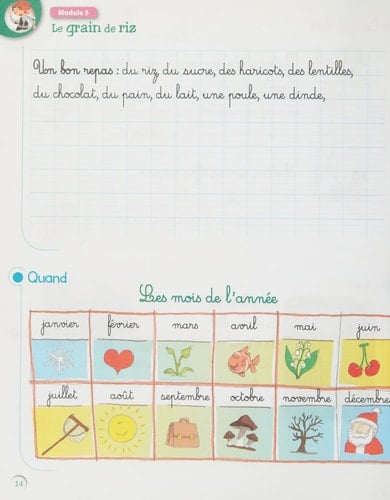 Module 5
Le grain de riz
Un bon repas : du riz, du sucre, des haricots, des lentilles,
du chocolat, du pain, du lait, une poule, une dinde,
Quand
Les mois de l'année
janvier février mars avril mai juin
juillet août septembre octobre novembre décembre
14